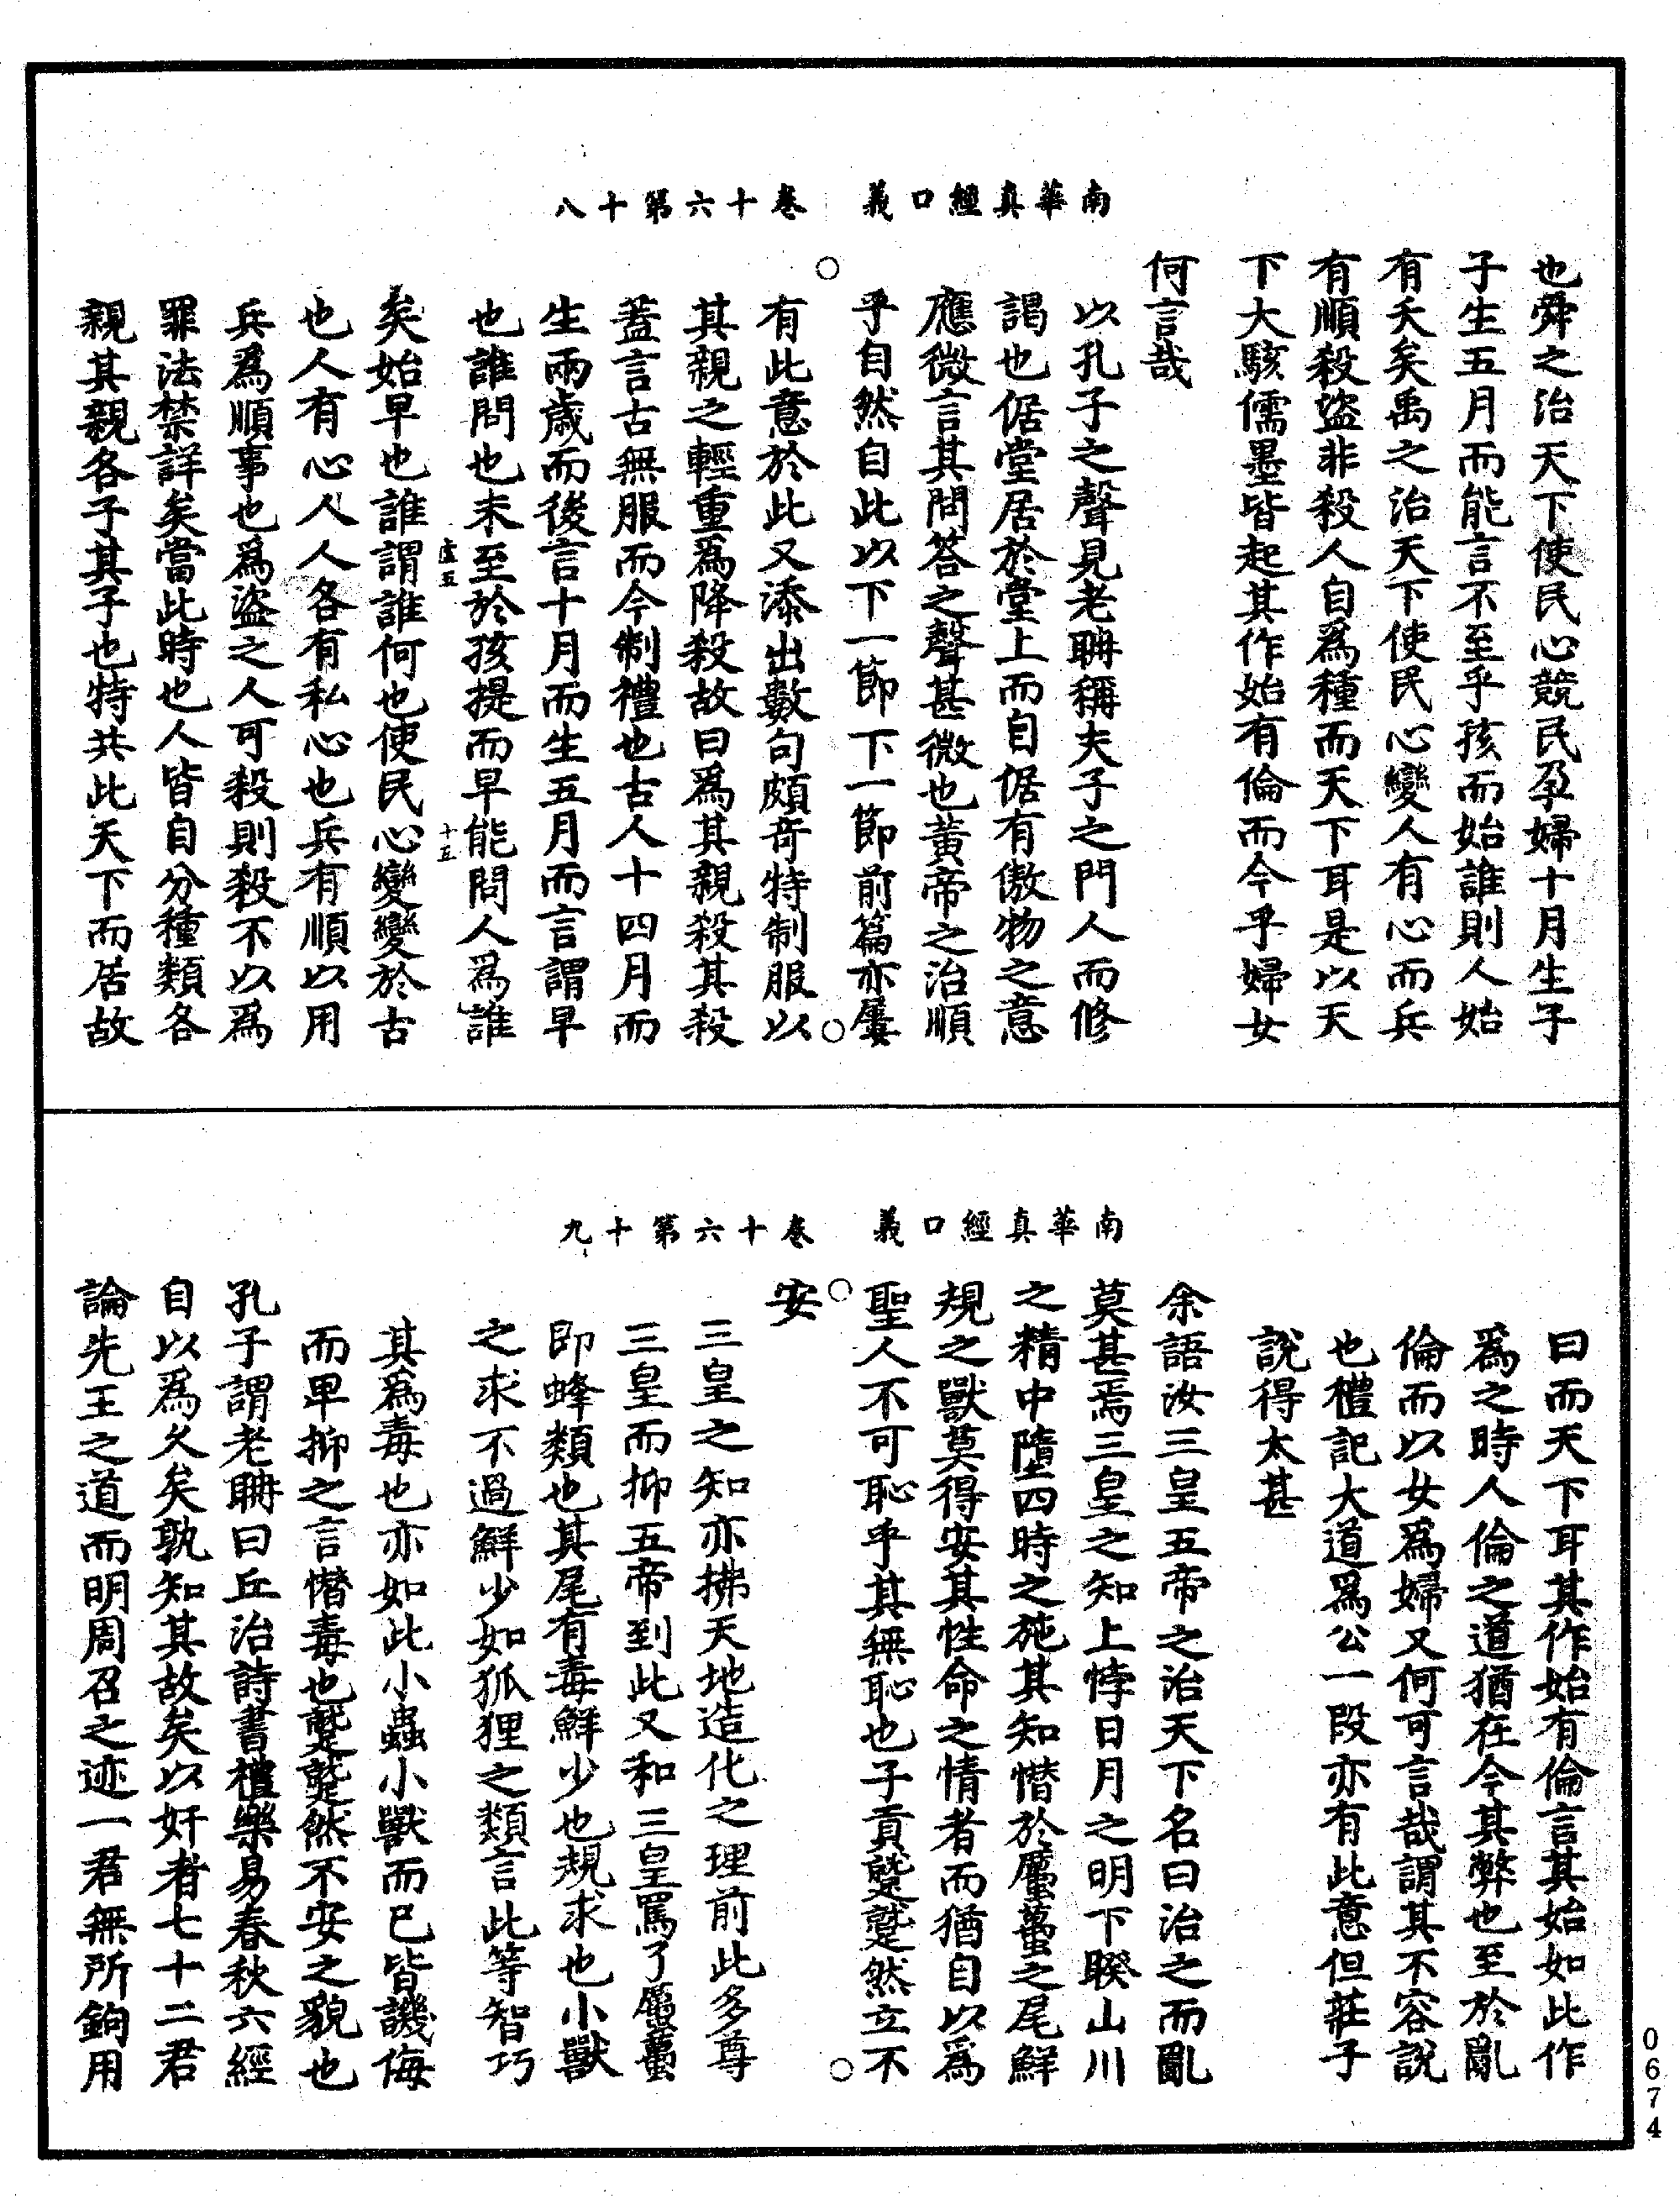 南華真經口義　卷十六第十八
也舜之治天下使民心競民孕婦十月生子
子生五月而能言不至乎孩而始誰則人始
有夭矣禹之治天下使民心變人有心而兵
有順殺盜非殺人自爲種而天下耳是以天
下大駭儒墨皆起其作始有倫而今乎婦女
何言哉
以孔子之聲見老聃稱夫子之門人而修
謁也倨堂居於堂上而自倨有傲物之意
應微言其問荅之聲甚微也黃帝之治順
乎自然自此以下一節下一節前篇亦屢
有此意於此又添出數句頗奇特制服以
其親之輕重爲降殺故曰爲其親殺其殺
蓋言古無服而今制禮也古人十四月而
生兩歲而後言十月而生五月而言謂早
也誰問也未至於孩提而早能問人爲誰
虛五　十五
矣始早也誰謂誰何也使民心變變於古
也人有心人人各有私心也兵有順以用
兵爲順事也爲盜之人可殺則殺不以爲
罪法禁詳矣當此時也人皆自分種類各
親其親各子其子也特共此天下而居故
南華真經口義　卷十六第十九
曰而天下耳其作始有倫言其始如此作
爲之時人倫之道猶在今其弊也至於亂
倫而以女爲婦又何可言哉謂其不容說
也禮記大道爲公一段亦有此意但莊子
說得太甚
余語汝三皇五帝之治天下名曰治之而亂
莫甚焉三皇之知上悖日月之明下睽山川
之精中墮四時之施其知憯於蠣蠆之尾鮮
規之獸莫得安其性命之情者而猶自以爲
聖人不可恥乎其無恥也子貢蹵蹵然立不
安
三皇之知亦拂天地造化之理前此多尊
三皇而抑五帝到此又和三皇罵了蠣蠆
即蜂類也其尾有毒鮮少也規求也小獸
之求不過鮮少如狐狸之類言此等智巧
其爲毒也亦如此小蟲小獸而已皆譏侮
而畢抑之言憯毒也蹵蹵然不安之貌也
孔子謂老聃曰丘治詩書禮樂易春秋六經
自以爲久矣孰知其故矣以奸者七十二君
論先王之道而明周召之迹一君無所鉤用
0674